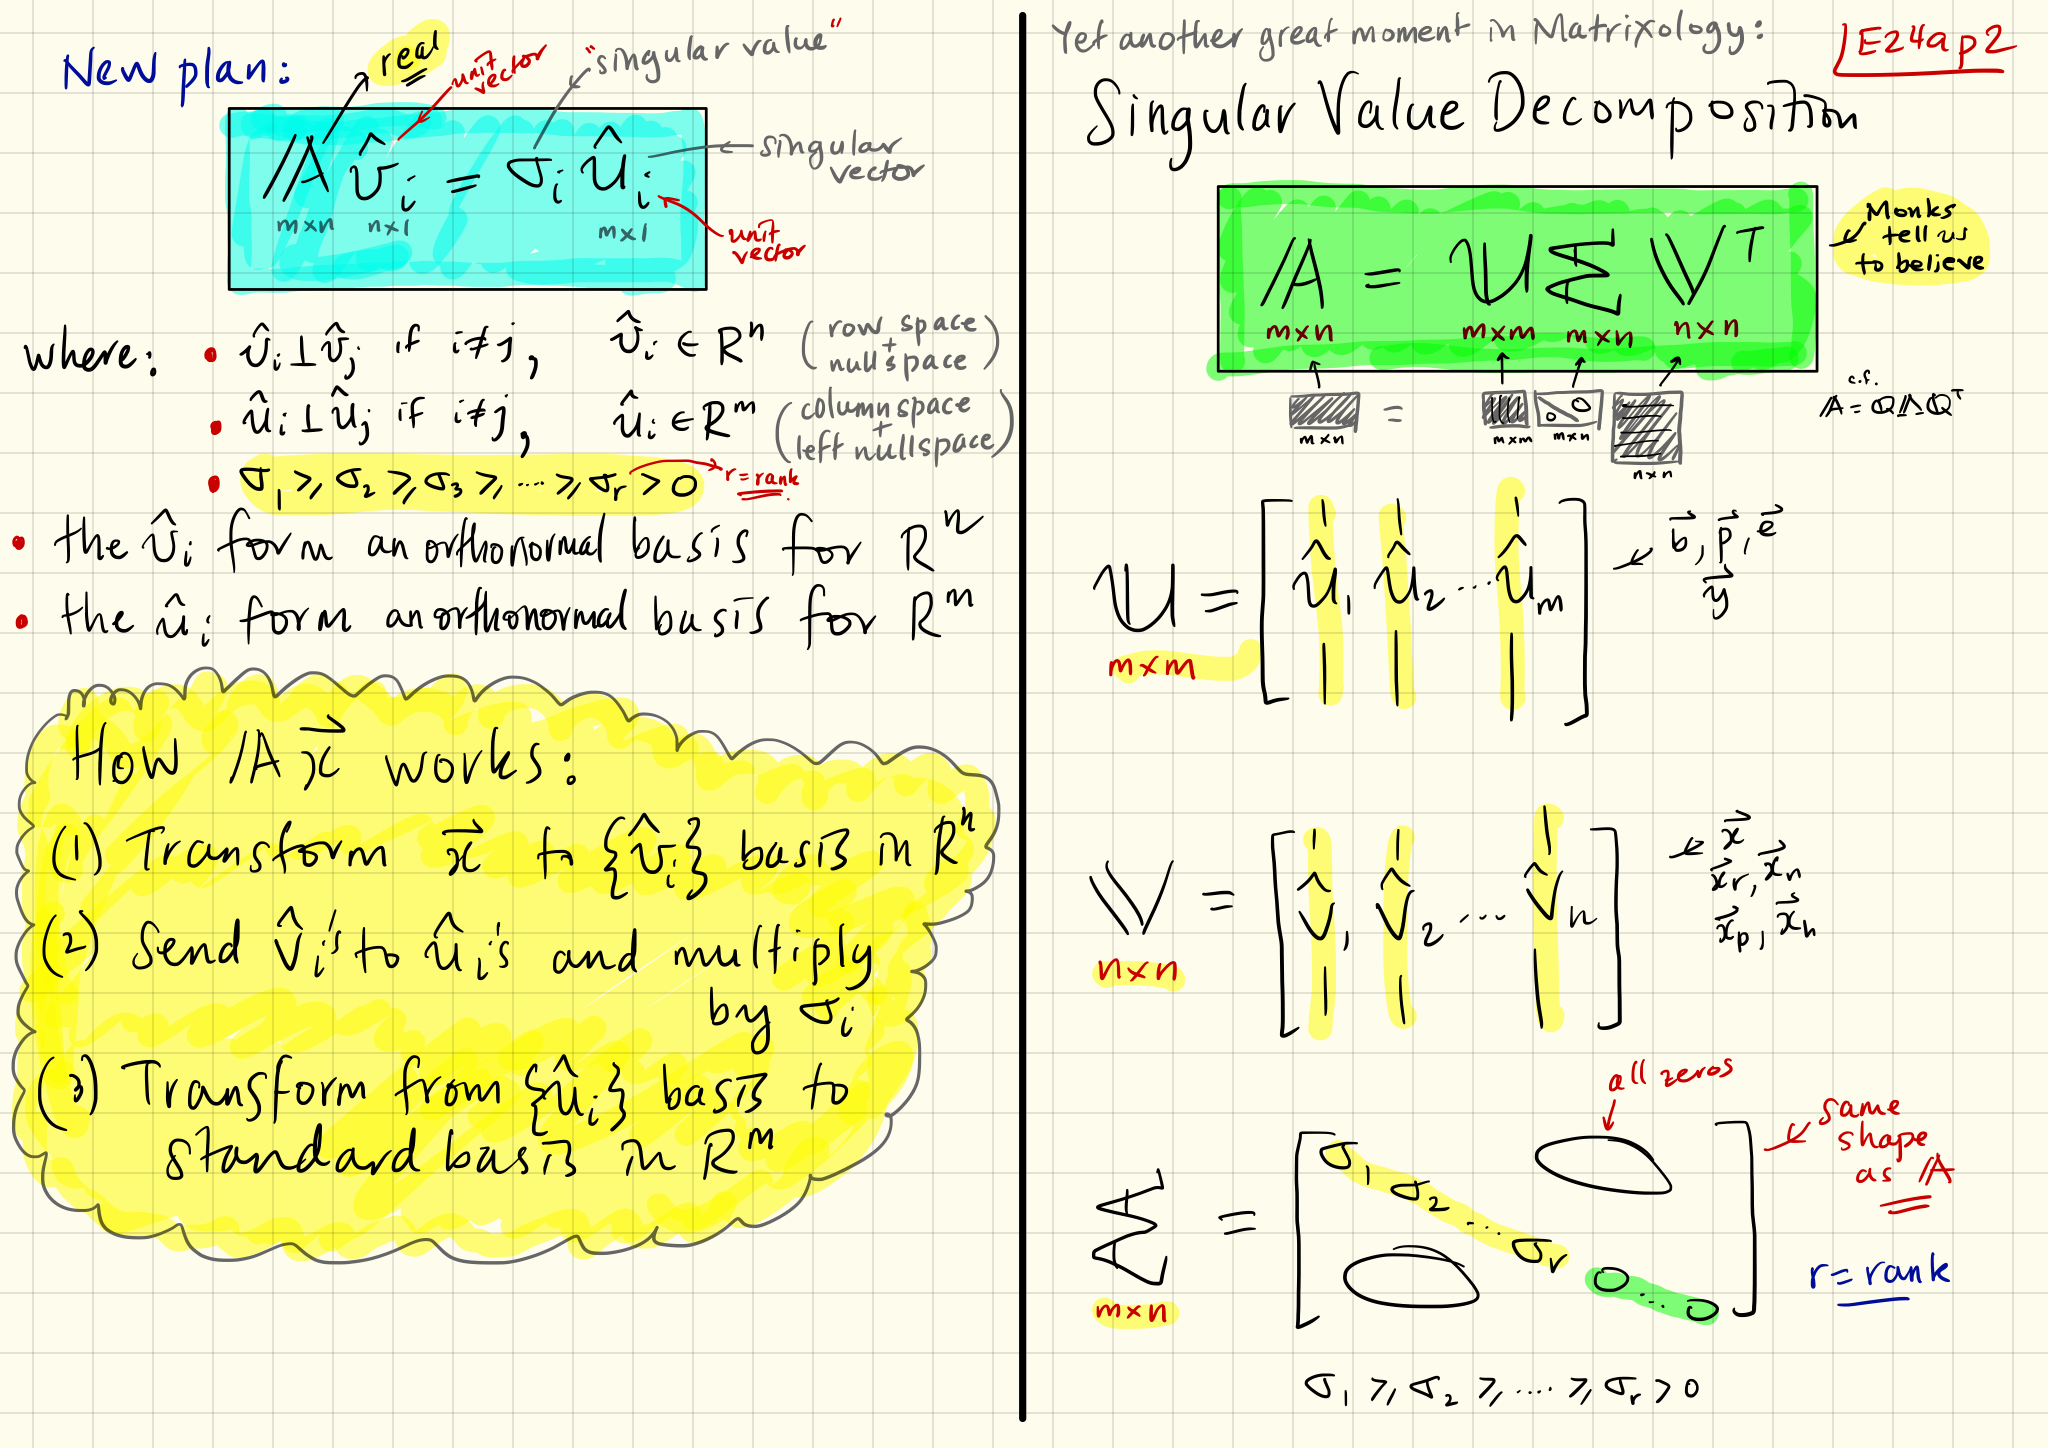 New plan:
real
unit vector
"singular value"
A v̂ᵢ = σᵢ ûᵢ
m×n n×1 m×1
singular vector
unit vector
where: • v̂ᵢ ⊥ v̂ⱼ if i≠j, v̂ᵢ ∈ Rⁿ (row space + nullspace)
• ûᵢ ⊥ ûⱼ if i≠j, ûᵢ ∈ Rᵐ (column space + left nullspace)
• σ₁ ≥ σ₂ ≥ σ₃ ≥ ... ≥ σᵣ > 0 r=rank
• the v̂ᵢ form an orthonormal basis for Rⁿ
• the ûᵢ form an orthonormal basis for Rᵐ
How A x⃗ works:
(1) Transform x⃗ to {v̂ᵢ} basis in Rⁿ
(2) Send v̂ᵢ's to ûᵢ's and multiply
by σᵢ
(3) Transform from {ûᵢ} basis to
standard basis in Rᵐ
Yet another great moment in Matrixology:
E24a p2
Singular Value Decomposition
A = U Σ Vᵀ
m×n m×m m×n n×n
Monks
tell us
to believe
=
m×n m×m m×n n×n
c.f.
A = QΛQᵀ
U = [ û₁ û₂ ... ûₘ ]
m×m
b⃗, p⃗, e⃗
y⃗
V = [ v̂₁ v̂₂ ... v̂ₙ ]
n×n
x⃗
x⃗ᵣ, x⃗ₙ
x⃗ₚ, x⃗ₕ
all zeros
Σ = [ σ₁ σ₂ ... σᵣ 0 ... 0 ]
m×n
same
shape
as A
r=rank
σ₁ ≥ σ₂ ≥ .... ≥ σᵣ > 0